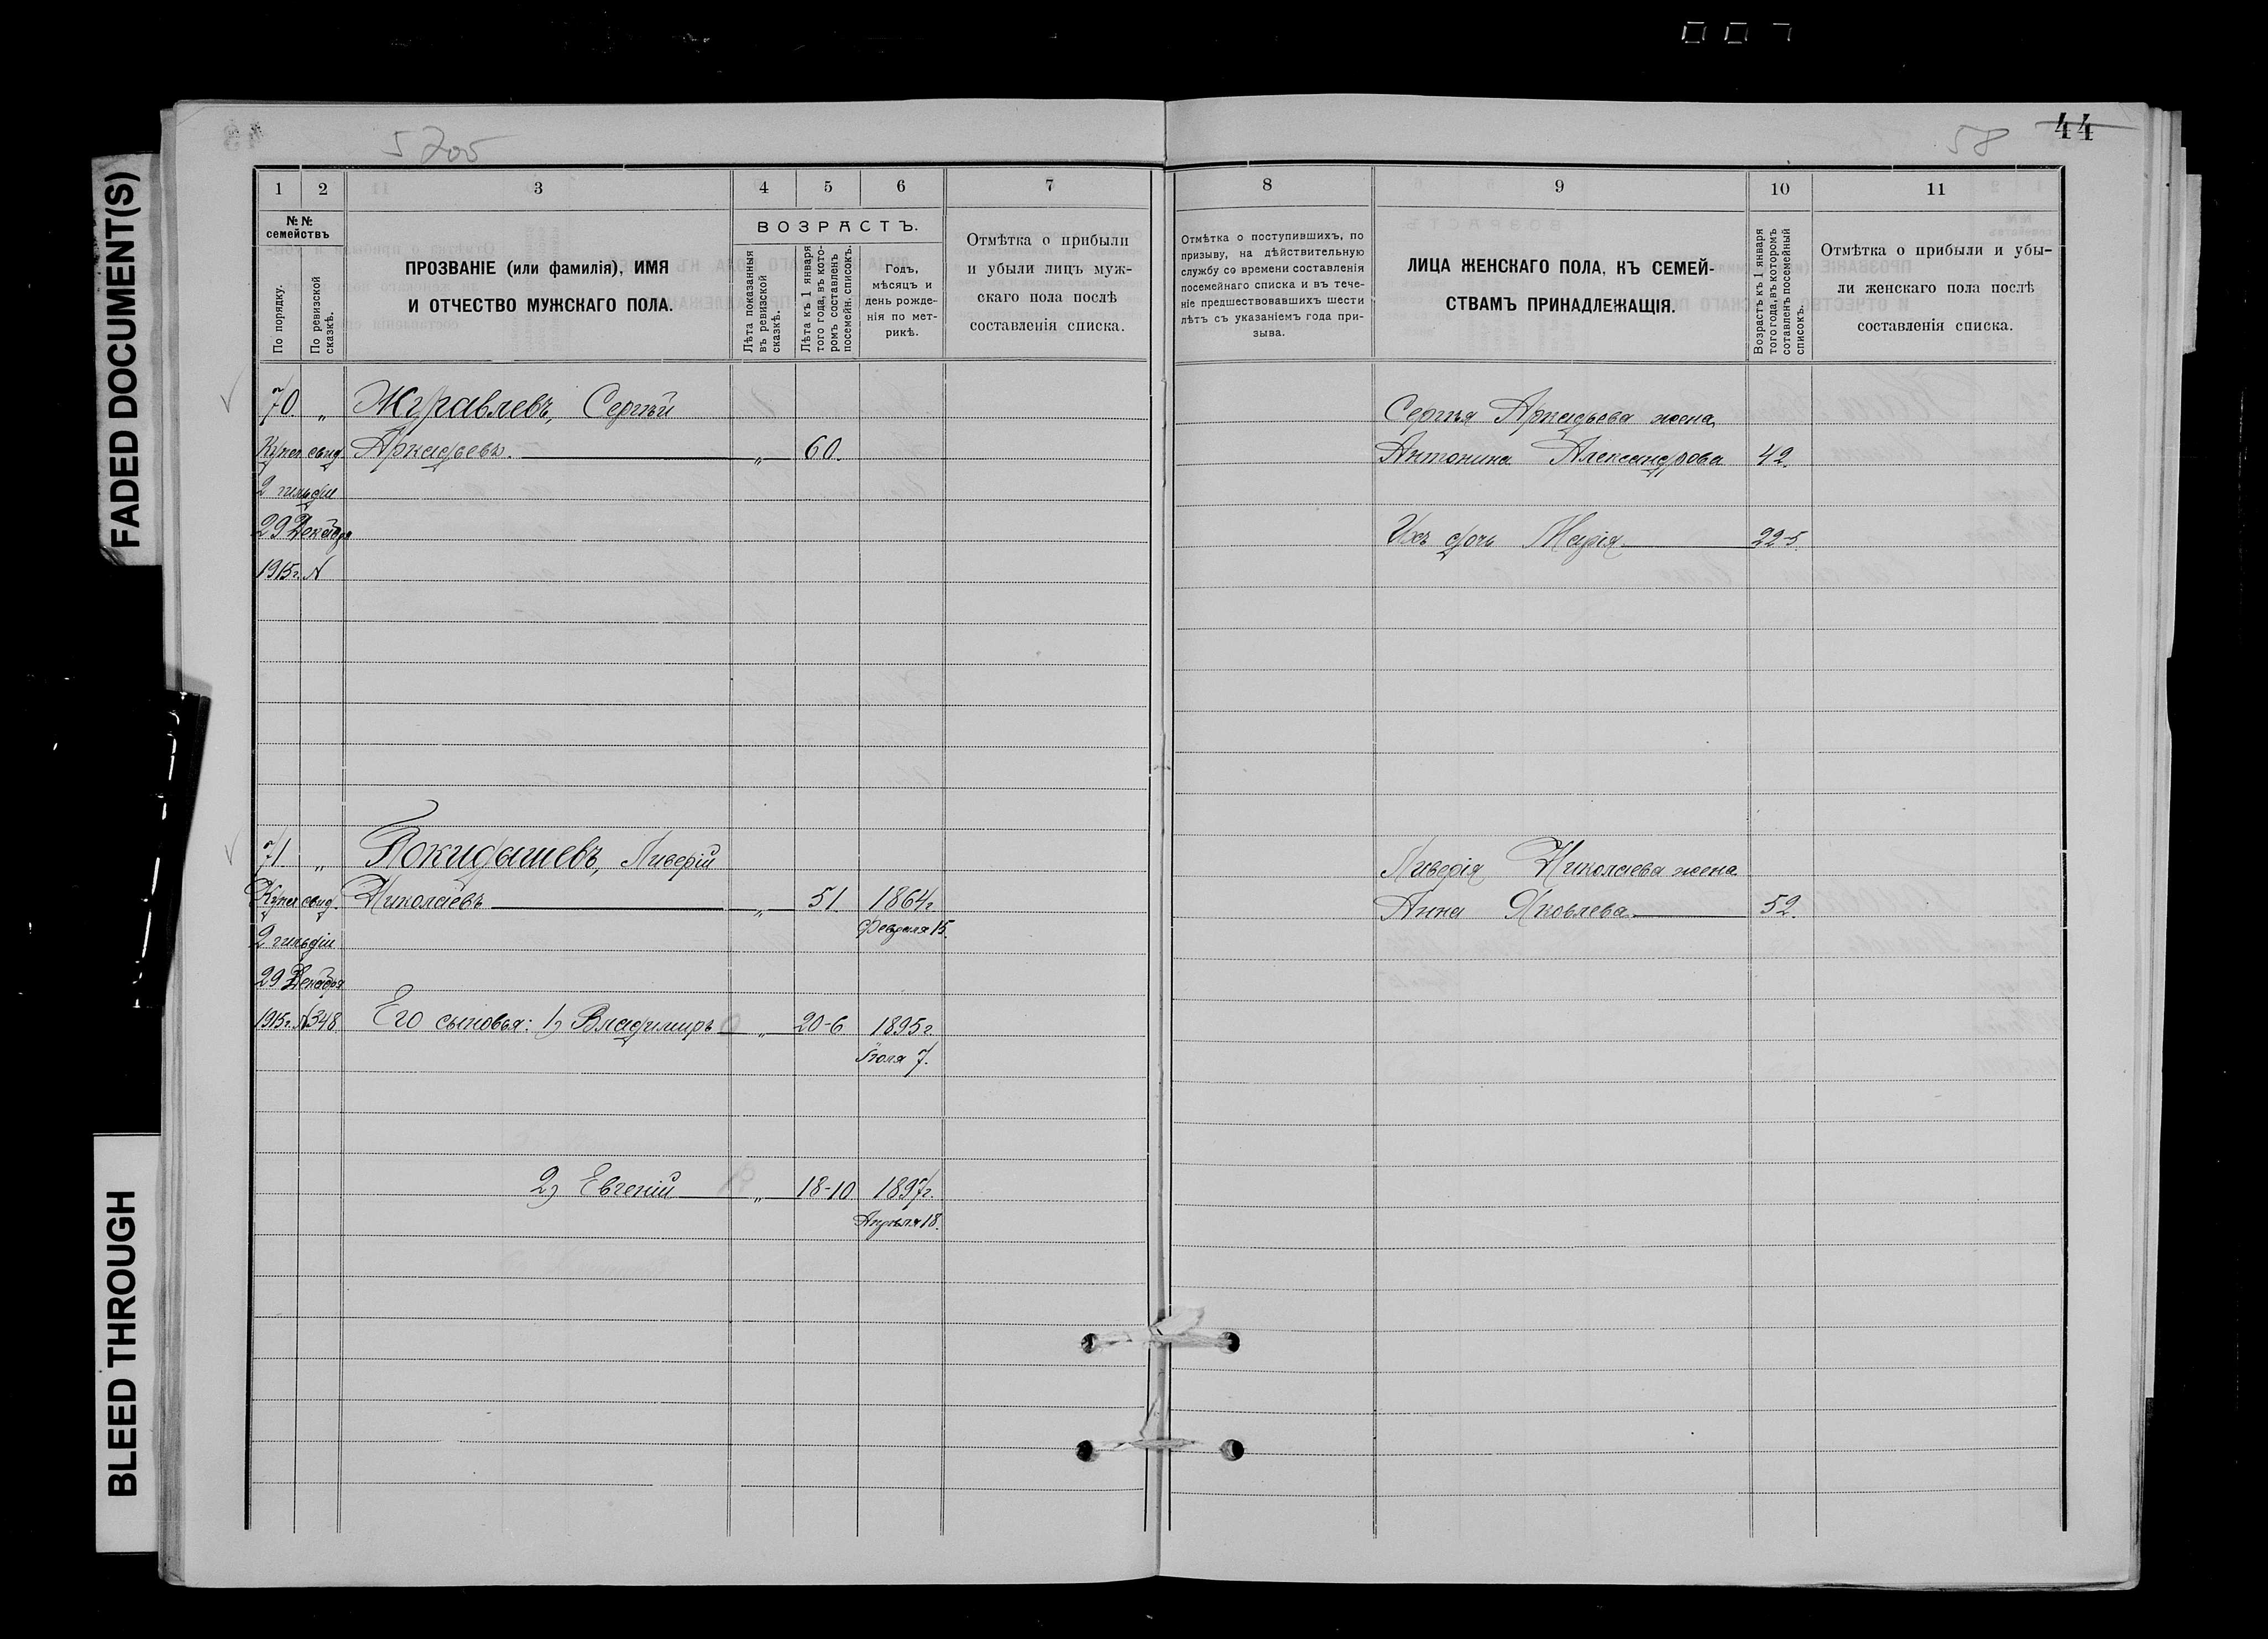 007
FADED DOCUMENT(S)
BLEED THROUGH
5705
58 44
1 2 3 4 5 6 7
№№ семействъ
По порядку.
По ревизской сказкѣ.
ПРОЗВАНІЕ (или фамилія), ИМЯ
И ОТЧЕСТВО МУЖСКАГО ПОЛА.
ВОЗРАСТЪ.
Лѣта показанныя
въ ревизской
сказкѣ.
Лѣта къ 1 января
того года, въ кото-
ромъ составленъ
посемейн. списокъ.
Годъ,
мѣсяцъ и
день рожде-
нія по мет-
рикѣ.
Отмѣтка о прибыли
и убыли лицъ муж-
скаго пола послѣ
составленія списка.
70. „ Журавлевъ, Сергѣй
Купеч свид. Аркадьевъ. „ 60.
2 гильдіи
29 Декабря
1915г. №
71 „ Покидышевъ, Ливерій
Купеч свид. Николаевъ „ 51. 1864г.
Февраля 15.
2 гильдіи
29 Декабря
1915г. №348 Его сыновья: 1) Владимиръ „ 20-6 1895г.
Іюля 7.
2) Евгеній „ 18-10 1897г.
Апрѣля 18.
8 9 10 11
Отмѣтка о поступившихъ, по
призыву, на дѣйствительную
службу со времени составленія
посемейнаго списка и въ тече-
ніе предшествовавшихъ шести
лѣтъ съ указаніемъ года при-
зыва.
ЛИЦА ЖЕНСКАГО ПОЛА, КЪ СЕМЕЙ-
СТВАМЪ ПРИНАДЛЕЖАЩІЯ.
Возрастъ къ 1 января
того года, въ которомъ
составленъ посемейный
списокъ.
Отмѣтка о прибыли и убы-
ли женскаго пола послѣ
составленія списка.
Сергѣя Аркадьева жена
Антонина Александрова 42.
Ихъ дочь Марія 22-5.
Ливерія Николаева жена
Анна Яковлева 52.